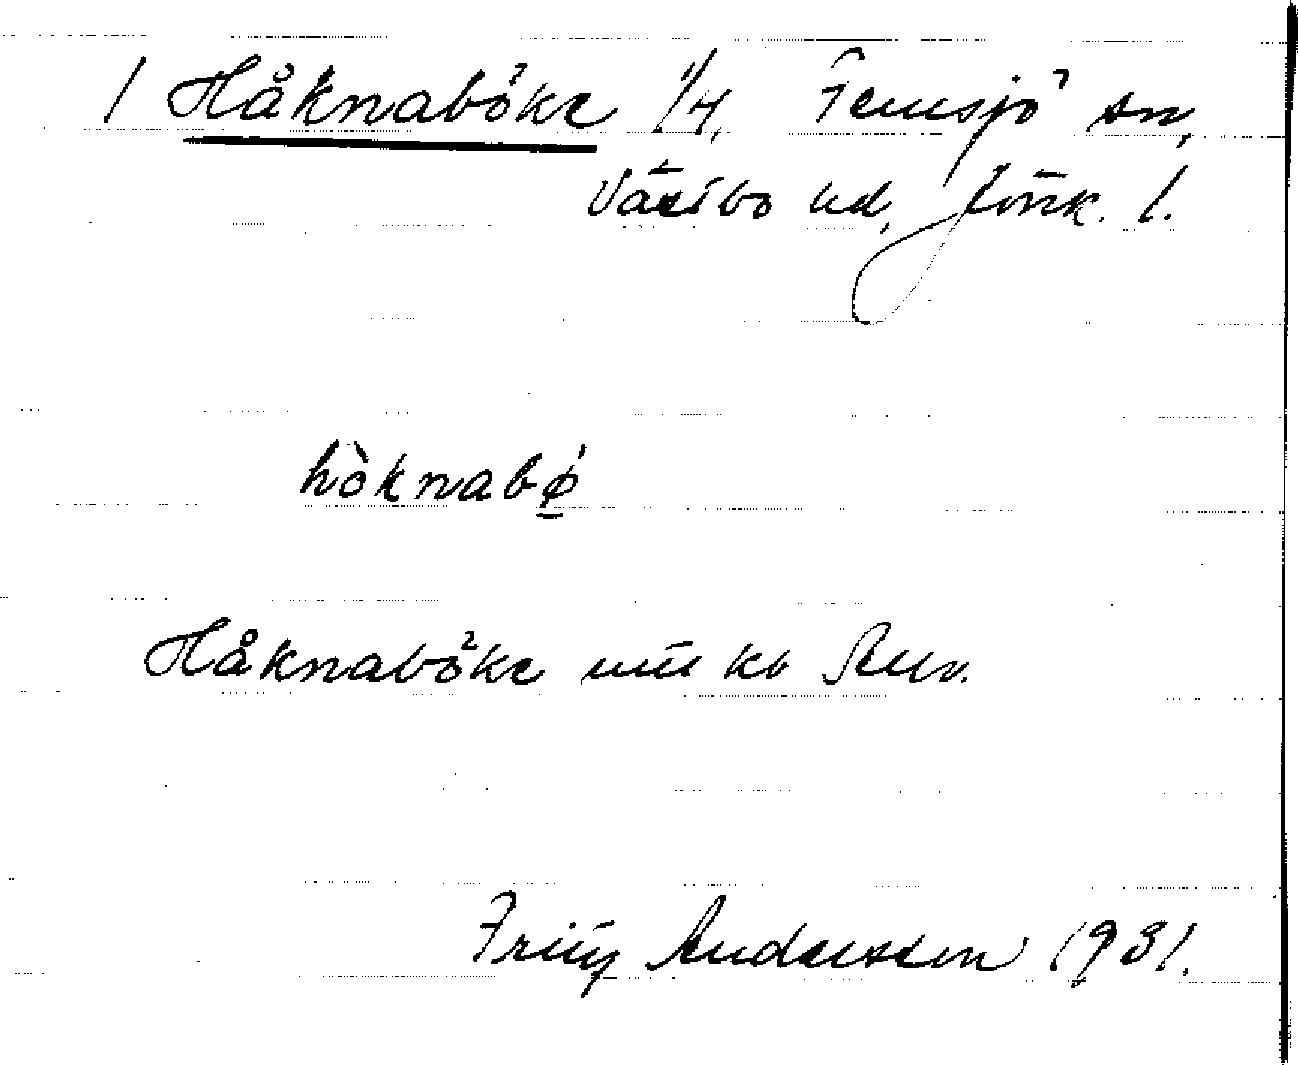 1 Håknaböke 1/4, Femsjö sn,
Västbo hd, Jönk. l.
hòknabø̱
Håknaböke
Fritz Andersson 1931.